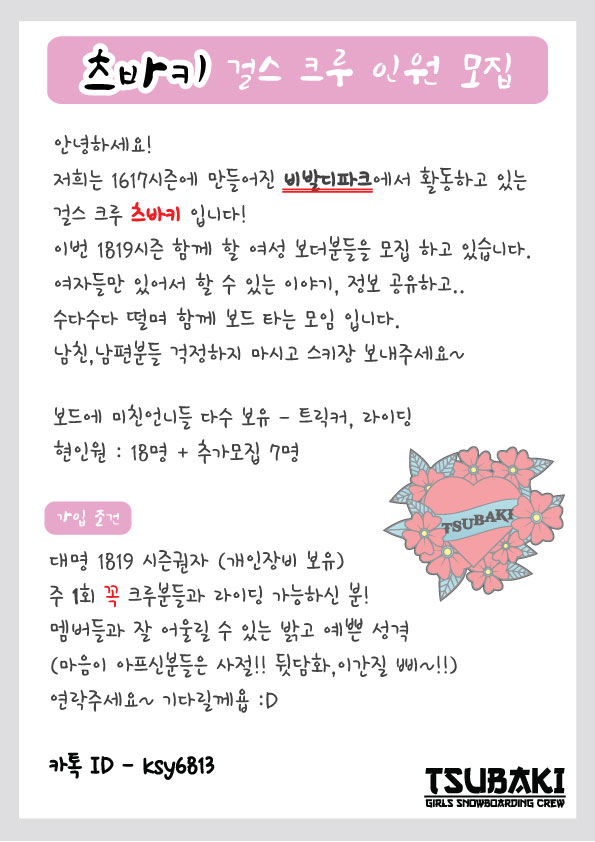 츠바키 걸스 크루 인원 모집
안녕하세요!
저희는 1617시즌에 만들어진 비발디파크에서 활동하고 있는
걸스 크루 츠바키 입니다!
이번 1819시즌 함께 할 여성 보더분들을 모집 하고 있습니다.
여자들만 있어서 할 수 있는 이야기, 정보 공유하고..
수다수다 떨며 함께 보드 타는 모임 입니다.
남친,남편분들 걱정하지 마시고 스키장 보내주세요~
보드에 미친언니들 다수 보유 - 트릭커, 라이딩
현인원 : 18명 + 추가모집 7명
TSUBAKI
가입 조건
대명 1819 시즌권자 (개인장비 보유)
주 1회 꼭 크루분들과 라이딩 가능하신 분!
멤버들과 잘 어울릴 수 있는 밝고 예쁜 성격
(마음이 아프신분들은 사절!! 뒷담화,이간질 삐~!!)
연락주세요~ 기다릴께욥 :D
카톡 ID - ksy6813
TSUBAKI
GIRLS SNOWBOARDING CREW